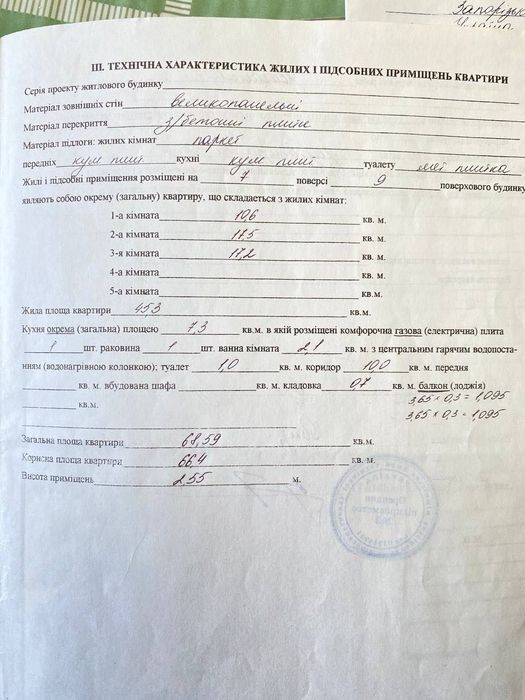 Запорізьк
Україна
III. ТЕХНІЧНА ХАРАКТЕРИСТИКА ЖИЛИХ І ПІДСОБНИХ ПРИМІЩЕНЬ КВАРТИРИ
Серія проекту житлового будинку
Матеріал зовнішніх стін великопанельні
Матеріал перекриття з/бетонні плити
Матеріал підлоги: жилих кімнат паркет
передніх кухні туалету плитка
Жилі і підсобні приміщення розміщені на 7 поверсі 9 поверхового будинку
являють собою окрему (загальну) квартиру, що складається з жилих кімнат:
1-а кімната 10,6 кв. м.
2-а кімната 17,5 кв. м.
3-я кімната 17,2 кв. м.
4-а кімната кв. м.
5-а кімната кв.м.
Жила площа квартири 45,3 кв. м.
Кухня окрема (загальна) площею 7,3 кв.м. в якій розміщені комфорочна газова (електрична) плита
1 шт. раковина 1 шт. ванна кімната 2,1 кв. м. з центральним гарячим водопоста-
нням (водонагрівною колонкою); туалет 1,0 кв. м. коридор 10,0 кв. м. передня
кв. м. вбудована шафа кв. м. кладовка 0,7 кв. м. балкон (лоджія)
кв.м.
3,65 × 0,3 = 1,095
3,65 × 0,3 = 1,095
Загальна площа квартири 68,59 кв.м.
Корисна площа квартири 66,4 кв. м.
Висота приміщень 2,55 м.